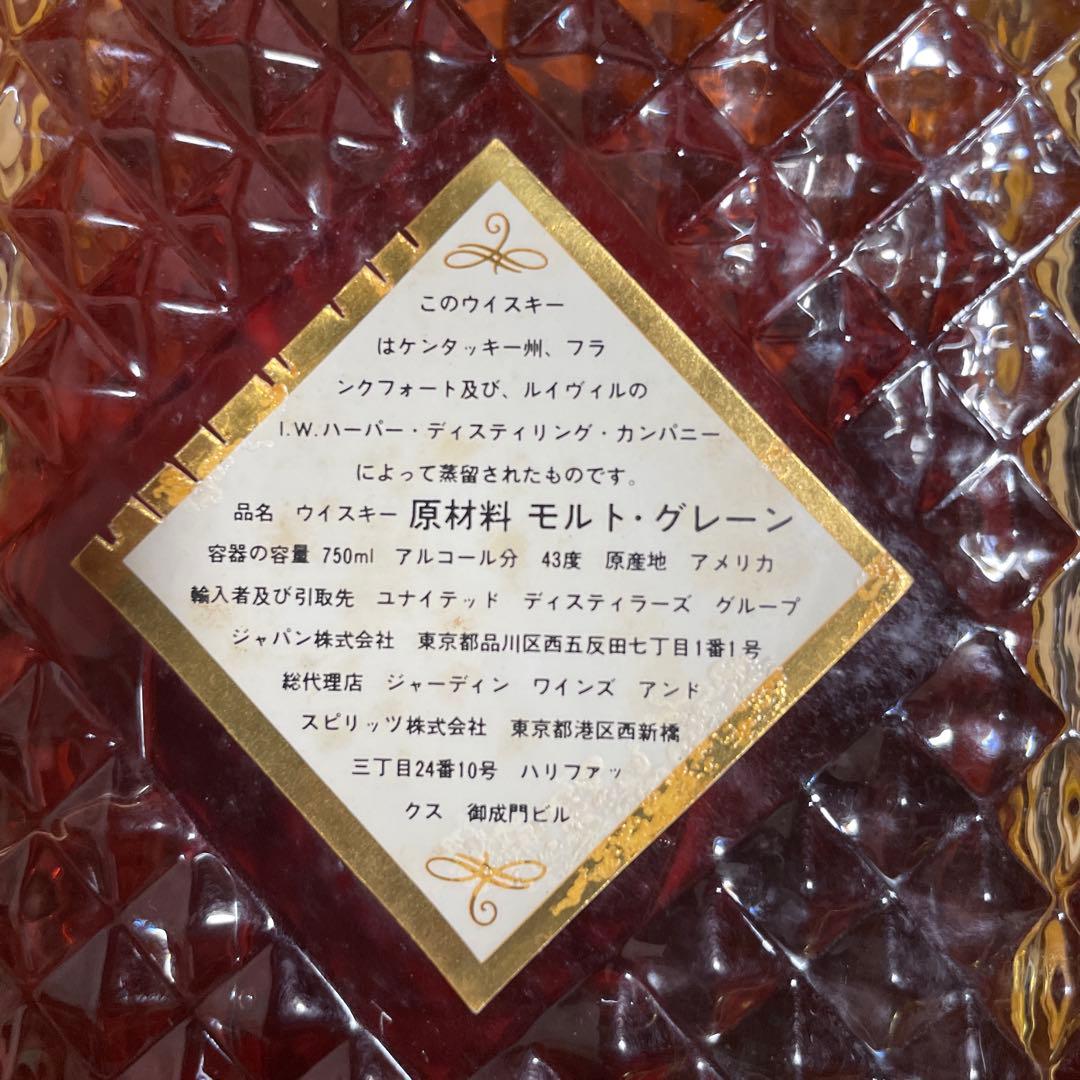 このウイスキー
はケンタッキー州、フラ
ンクフォート及び、ルイヴィルの
I.W.ハーパー・ディスティリング・カンパニー
によって蒸留されたものです。
品名 ウイスキー 原材料 モルト・グレーン
容器の容量 750ml アルコール分 43度 原産地 アメリカ
輸入者及び引取先 ユナイテッド ディスティラーズ グループ
ジャパン株式会社 東京都品川区西五反田七丁目1番1号
総代理店 ジャーディン ワインズ アンド
スピリッツ株式会社 東京都港区西新橋
三丁目24番10号 ハリファッ
クス 御成門ビル